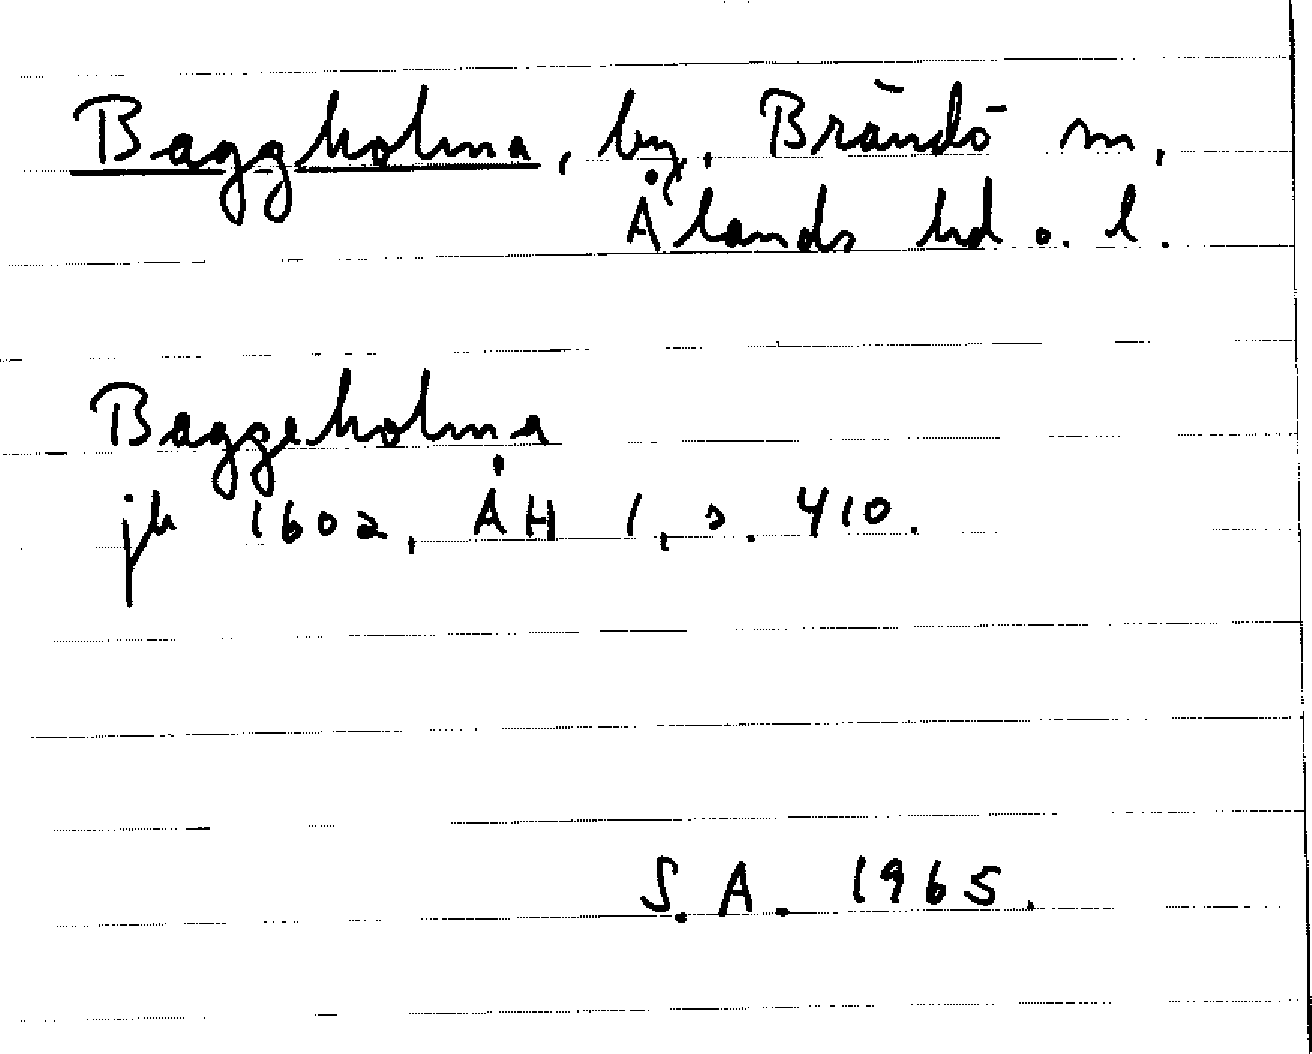 Baggholma, by, Brändö m,
Ålands hd o. l.
Baggeholma
jb 1602, ÅH 1, s. 410.
S.A. 1965.